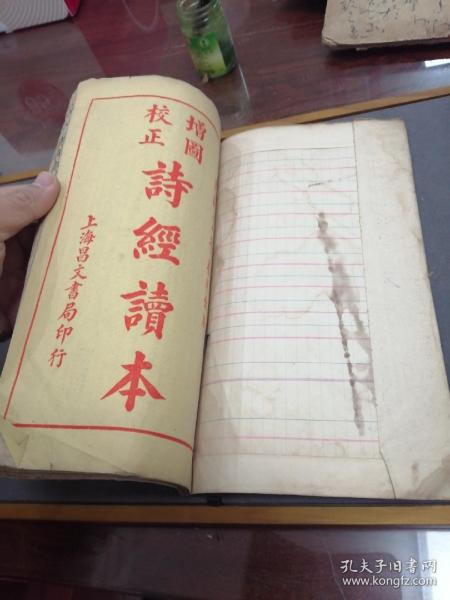 增圖
校正
詩經讀本
上海昌文書局印行
孔夫子旧书网
www.kongfz.com